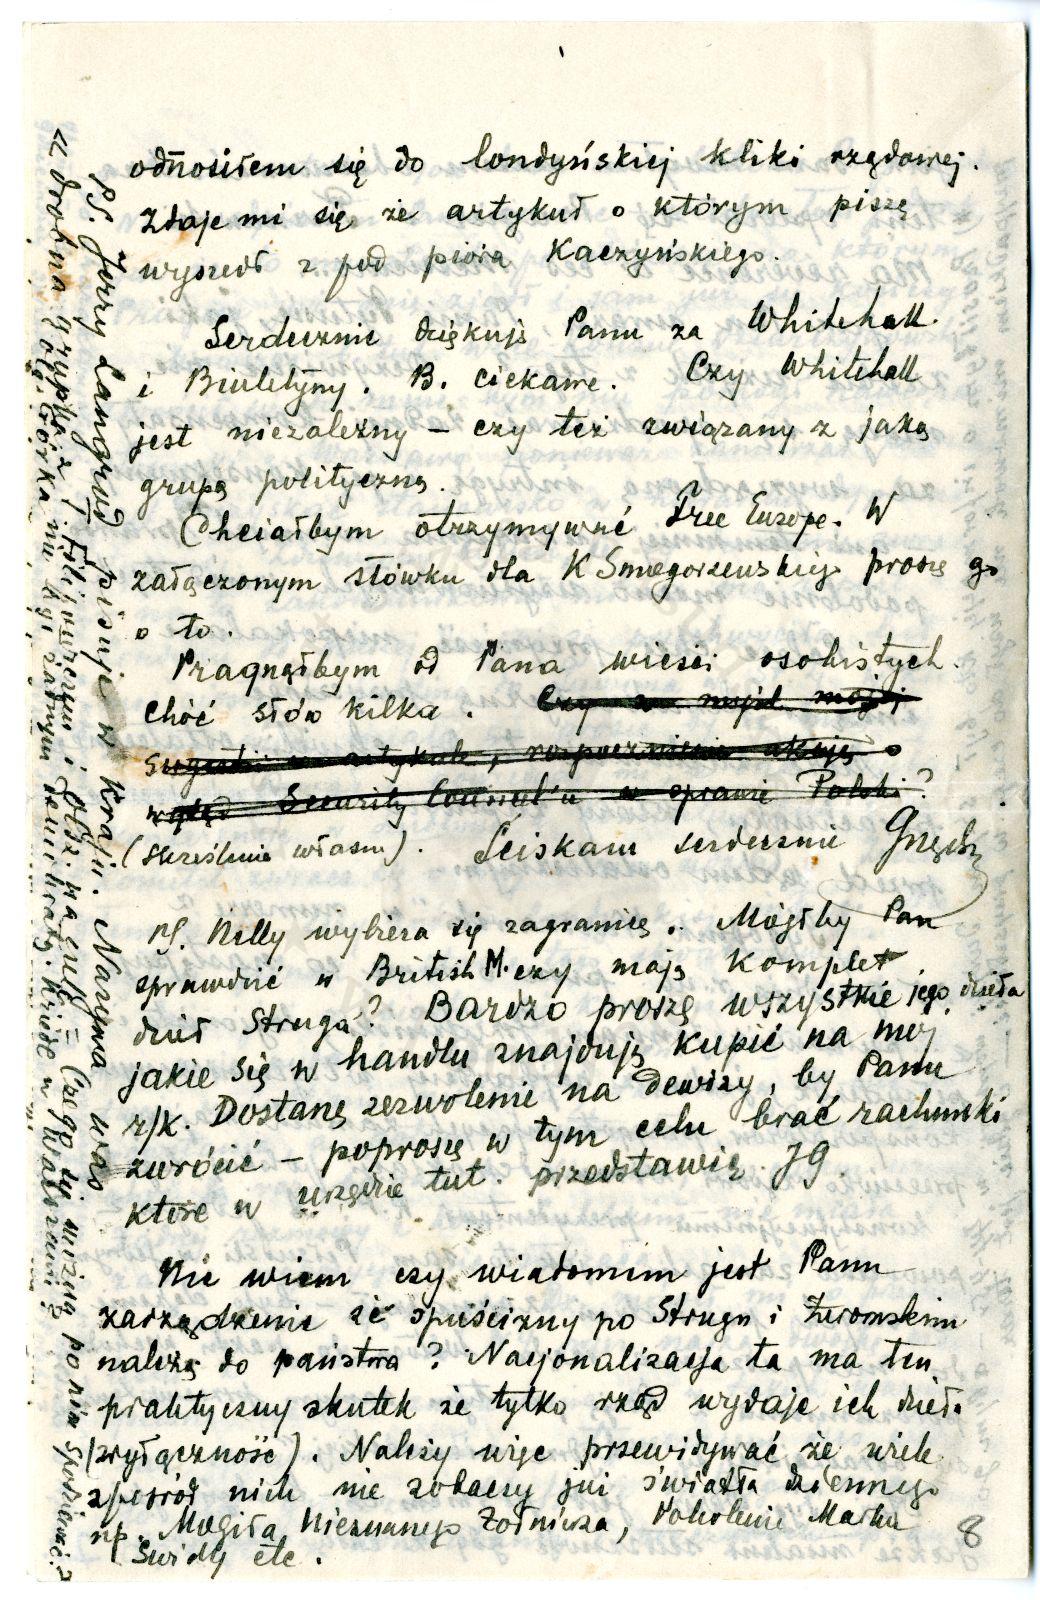 odnosiłem się do londyńskiej kliki rządowej.
Zdaje mi się że artykuł o którym piszę
wyszedł z pod pióra Kaczyńskiego.
Serdecznie dziękuję Panu za Whitehall
i Biuletyny. B. ciekawe. Czy Whitehall
jest niezależny – czy też związany z jaką
grupą polityczną.
Chciałbym otrzymywać Free Europe. W
załączonym słówku dla K Smogorzewskiego proszę go
o to.
Pragnąłbym od Pana wieści osobistych.
Choć słów kilka. Czy w myśl mojej
sugestii w artykule, rozpoczniecie akcję o
wgląd Security Council'u w sprawie Polski?
(skreślenie własne). Ściskam serdecznie
PS. Nelly wybiera się zagranicę. Mógłby Pan
sprawdzić w British M. czy mają komplet
dzieł Struga? Bardzo proszę wszystkie jego dzieła
jakie się w handlu znajdują kupić na mój
r/k. Dostanę zezwolenie na dewizy, by Panu
zwrócić – poproszę w tym celu brać rachunki
które w urzędzie tut. przedstawię. JG.
Nie wiem czy wiadomem jest Panu
zarządzenie że spuścizny po Strugu i Żeromskim
należą do państwa? Nacjonalizacja ta ma ten
praktyczny skutek że tylko rząd wydaje ich dzieła
(wyłączność). Należy więc przewidywać że wiele
spośród nich nie zobaczy już światła dziennego
np. Mogiła Nieznanego Żołnierza, Pokolenie Marka
Świdy etc.
8
PS. Jerzy Langrod pisuje w Kraju. Nazywa was
« drobną grupką z T. Filipowiczem i